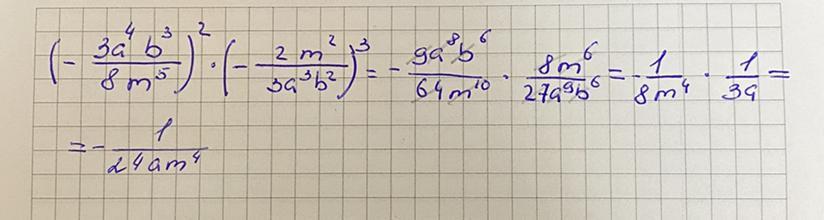 (- 3a⁴b³/8m⁵)² · (- 2m²/3a³b²)³ = - 9a⁸b⁶/64m¹⁰ · 8m⁶/27a⁹b⁶ = - 1/8m⁴ · 1/3a =
= - 1/24am⁴